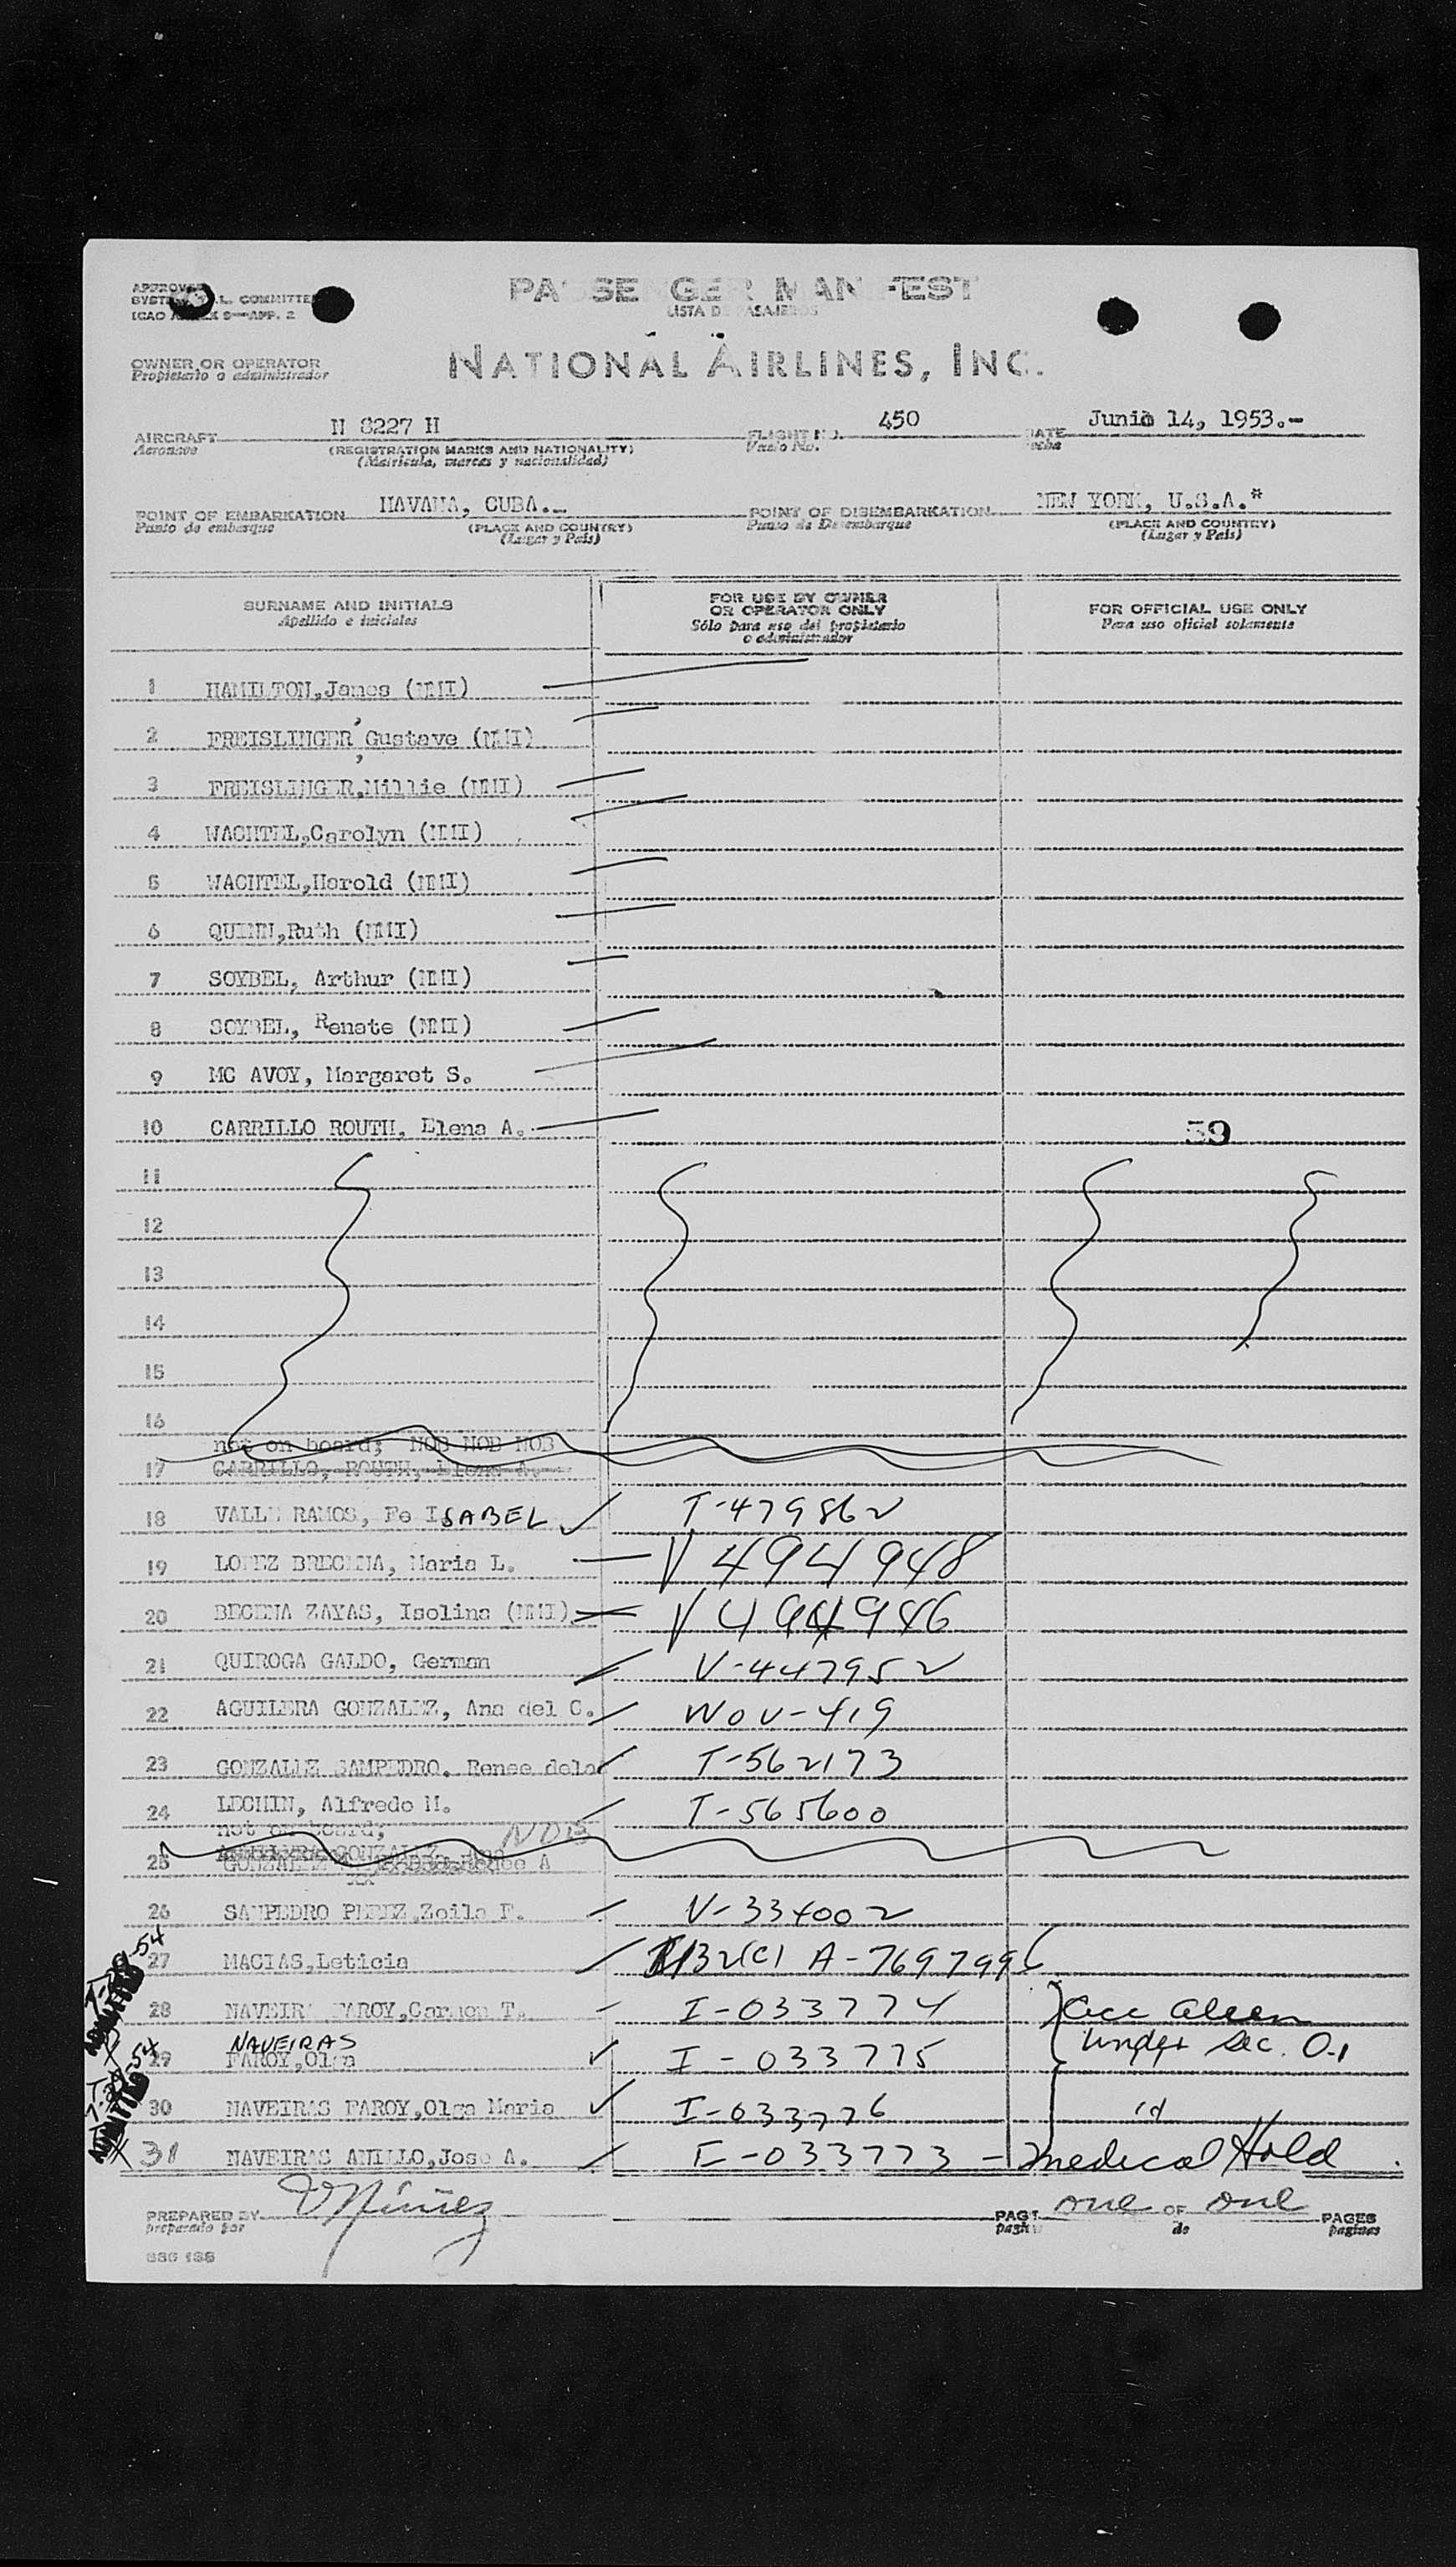 PASSENGER MANIFEST
LISTA DE PASAJEROS
APPROVED
ICAO ANNEX 9—APP. 2
OWNER OR OPERATOR
Propietario o administrador
NATIONAL AIRLINES, INC.
AIRCRAFT N 8227 H FLIGHT NO. 450 DATE Junio 14, 1953.-
Aeronave (REGISTRATION MARKS AND NATIONALITY) Vuelo No. Fecha
(Matricula, marcas y nacionalidad)
POINT OF EMBARKATION HAVANA, CUBA.- POINT OF DISEMBARKATION NEW YORK, U.S.A.*
Punto de embarque (PLACE AND COUNTRY) Punto de Desembarque (PLACE AND COUNTRY)
(Lugar y País) (Lugar y País)
SURNAME AND INITIALS
Apellido e iniciales
FOR USE BY OWNER
OR OPERATOR ONLY
Sólo para uso del propietario
o administrador
FOR OFFICIAL USE ONLY
Para uso oficial solamente
1 HAMILTON,James (NMI)
2 FREISLINGER, Gustave (NMI)
3 FREISLINGER,Millie (NMI)
4 WACHTEL,Carolyn (NMI)
5 WACHTEL,Harold (NMI)
6 QUINN,Ruth (NMI)
7 SOYBEL, Arthur (NMI)
8 SOYBEL, Renate (NMI)
9 MC AVOY, Margaret S.
10 CARRILLO ROUTH, Elena A. 59
11
12
13
14
15
16
not on board; NOB NOB NOB
17 CARRILLO, ROUTH, Elena A.
18 VALLE RAMOS, Fe ISABEL T-479862
19 LOPEZ BRECENA, Maria L. V 494948
20 BECENA ZAYAS, Isolina (NMI) V 494946
21 QUIROGA GALDO, German V-447952
22 AGUILERA GONZALEZ, Ana del C. WOV-419
23 GONZALEZ SAMPEDRO, Renee dela T-562173
24 LECHIN, Alfredo M. T-565600
not on board; NOB
25 GONZALEZ
26 SAMPEDRO PEREZ,Zoila F. V-334002
27 MACIAS,Leticia A-7697996
28 NAVEIRAS FAROY,Carmen T. I-033774
under Sec.
NAVEIRAS
29 FAROY,Olga I-033775
30 NAVEIRAS FAROY,Olga Maria I-033776 id
31 NAVEIRAS ANILLO,Jose A. I-033773 - medical Hold
ADMITTED
ADMITTED
PREPARED BY V Núñez PAGE one OF one PAGES
preparado por pagina de paginas